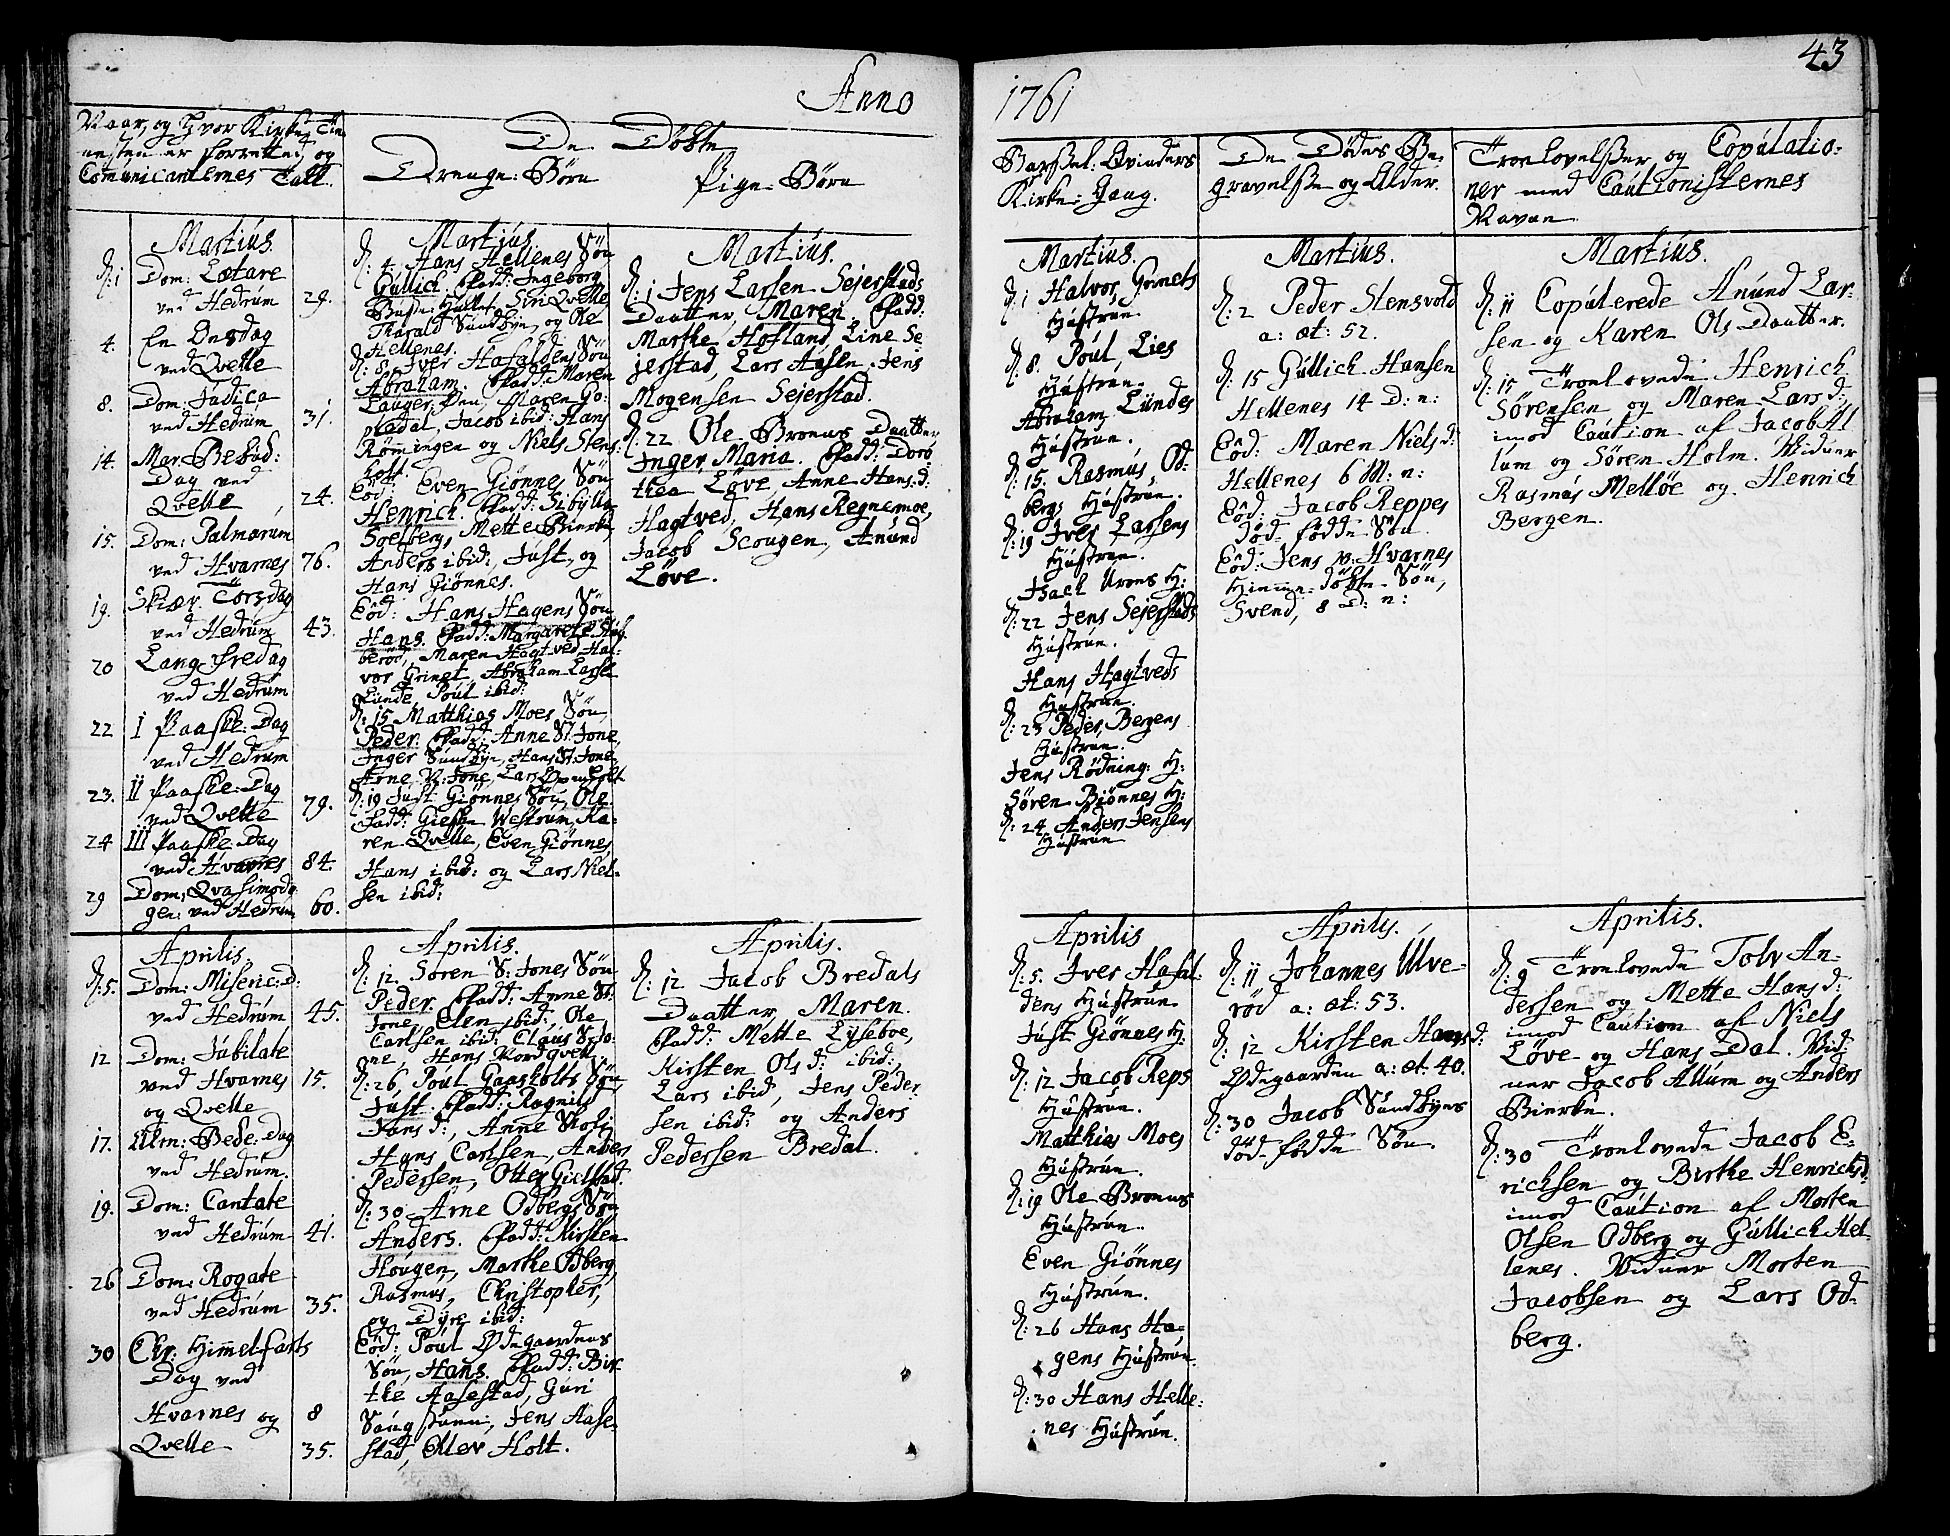 43
Anno
1761
Naar, og hvor Kirke-Tie-
nesten er forrettet, og
Comunicanternes Tall.
De Döbte
Drenge-Börn
Pige-Börn
Barsel-Qvinders
Kirke-Gang.
De Dödes Be-
gravelße og Alder.
Troelovelßer, og Copúlatio-
ner med Caútionisternes
Navne
Martiús.
d: 1 Dom: Lætare
ved Hedrúm 29.
4. En Onsdag
ved Qvelle
8. Dom: Júdica
ved Hedrúm 31.
14. Mar. Bebúd:
Dag ved
Qvelle 24.
15. Dom: Palmarúm
ved Hvarnes 76.
19. Skiær-Torsdag
ved Hedrúm 43.
20 Lang-Fredag
ved Hedrúm
22 I Paaske-Dag
ved Hedrúm
23. II Paaske-Dag
ved Qvelle 79.
24 III Paaske-Dag
ved Hvarnes 84.
29 Dom: Qvasimodo
gen: ved Hedrúm 60.
Martiús.
d: 4 Hans Hellenes Sön
Gúllich. Fadd: Ingeborg
Hallet, Siri Qvelle
Harald Súndbÿe, og Ole
Hellenes.
d: 8. Iver Hafaldens Sön
Abraham. Fadd: Maren
Laúger Øen, Maren Go-
perdal, Jacob ibid: Hans
Römmingen og Niels Stens-
holt.
Eod: Even Giönnes Sön
Henrich. Fadd: Sibylla
Soelberg, Mette Bierke,
Anders ibid: Júst, og
Hans Giönnes.
Eod: Hans Hagens Sön
Hans. Fadd: Margarete Skú-
beröd, Maren Hagtved, Hal-
vor Grinet, Abraham Larße
Lúnde, Poúl ibid:
d: 15 Matthias Moes Sön,
Peder. Fadd: Anne St. Jone,
Inger Súndbÿe, Hans St. Jone,
Arne N: Jone, Lars Øpenholt
d: 19 Júst Giönnes Sön, Ole.
Fadd: Gießke Westrúm, Ka-
ren Qvelle, Even Giönnes,
Hans ibid: og Lars Niel-
sen ibid:
Martiús.
d: 1 Jens Larsen Sejerstads
Daatter, Maren. Fadd:
Marthe Hofland, Line Se-
jerstad, Lars Aasen, Jens
Mogensen Sejerstad.
d: 22 Ole Bronús Daatter
Inger Maria. Fadd: Doro-
thea Löve, Anne Hans:d:
Hagtved, Hans Regnemoe,
Jacob Scougen, Anúnd
Löve.
Martiús.
d: 1 Halvor Grinets
Hústrúe.
d: 8. Poúl Lies
Hústrúe.
Abraham Lúndes
Hústrúe.
d: 15. Rasmús Od-
bergs Hústrúe.
d: 19 Ives Larsens
Hústrúe.
Isach Úrens H:
d: 22 Jens Sejerstads
Hústrúe.
Hans Hagtveds
Hústrúe.
d: 23 Peder Bergens
Hústrúe.
Jens Rödning: H:
Sören Biönnes H:
d: 24 Anders Jensens
Hústrúe
Martiús.
d: 2 Peder Stensvold
a: æt: 52.
d: 15 Gúllich Hansen
Hellenes 14 D: n:
Eod: Maren Niels d:
Hellenes 6 M: n:
Eod: Jacob Reppes
död-födde Sön
Eod: Jens p: Hvarnes
Hiemme-döbte Sön,
Svend, 8 D: n:
Martiús.
d: 11 Copúlerede Anúnd Lar-
sen og Karen Ols Daatter.
d: 15 Troelovede Henrich
Sörensen og Maren Lars d:,
imod Caútion af Jacob Al-
lúm og Sören Holm. Widner
Rasmús Mellöe og Henrich
Bergen.
Aprilis.
d: 5. Dom: Miseric: D:
ved Hedrúm 45.
12 Dom: Júbilate
ved Hvarnes 15.
og Qvelle
17. Alm: Bede-Dag
ved Hedrúm.
19. Dom: Cantate
ved Hedrúm 41.
26 Dom: Rogate
ved Hedrúm 35.
30 Chr: Himmelfarts
Dag ved
Hvarnes og 8
Qvelle 35.
Aprilis.
d: 12. Sören S: Jones Sön
Peder. Fadd: Anne St.
Jone, Elen ibid:, Ole
Carlsen ibid: Claús S: Jo-
ne, Hans Nordqvelle.
d: 26. Poúl Gaasholts Sön,
Júst. Fadd: Ragnild
Hans d:, Anne Skoli,
Hans Carlsen, Anders
Pedersen, Otter Gielstad.
d: 30 Arne Odbergs Sön
Anders. Fadd: Kirsten
Hoúgen, Marthe Odberg,
Rasmús, Christopher,
og Dyre ibid:
Eod: Poúl Ødegaardens
Sön, Hans. Fadd: Bir-
the Aasestad, Gúri
Jens Aase-
stad, Ellev Holt.
Aprilis.
d: 12 Jacob Bredals
Daatter, Maren.
Fadd: Mette Lyseboe,
Kirsten Ols d: ibid:,
Lars ibid, Jens Peder-
sen ibid: og Anders
Pedersen Bredal.
Aprilis
d: 5. Iver Hafal-
dens Hústrúe.
Júst Giönnes H:
d: 12 Jacob Reps
Hústrúe.
Matthias Moes
Hústrúe.
d: 19 Ole Bronús
Hústrúe.
Even Giönnes
Hústrúe.
d: 26 Hans Ha-
gens Hústrúe.
d: 30 Hans Helle-
nes Hústrúe.
Aprilis.
d: 11 Johannes Ulve-
röd a: æt: 53.
d: 12 Kirsten Hans d:
Ødegaarden a: æt: 40.
d: 30 Jacob Súndbÿes
död-födde Sön
Aprilis.
d: 9 Troelovede Tolv An-
dersen og Mette Hans d:
imod Caútion af Niels
Löve og Hans Dal. Wid-
ner Jacob Allúm og Anders
Bierke.
d: 30 Troelovede Jacob E-
richsen og Birthe Henrichs d:
imod Caútion af Morten
Olsen Odberg og Gúllich Hel-
lenes. Widner Morten
Jacobsen og Lars Od-
berg.